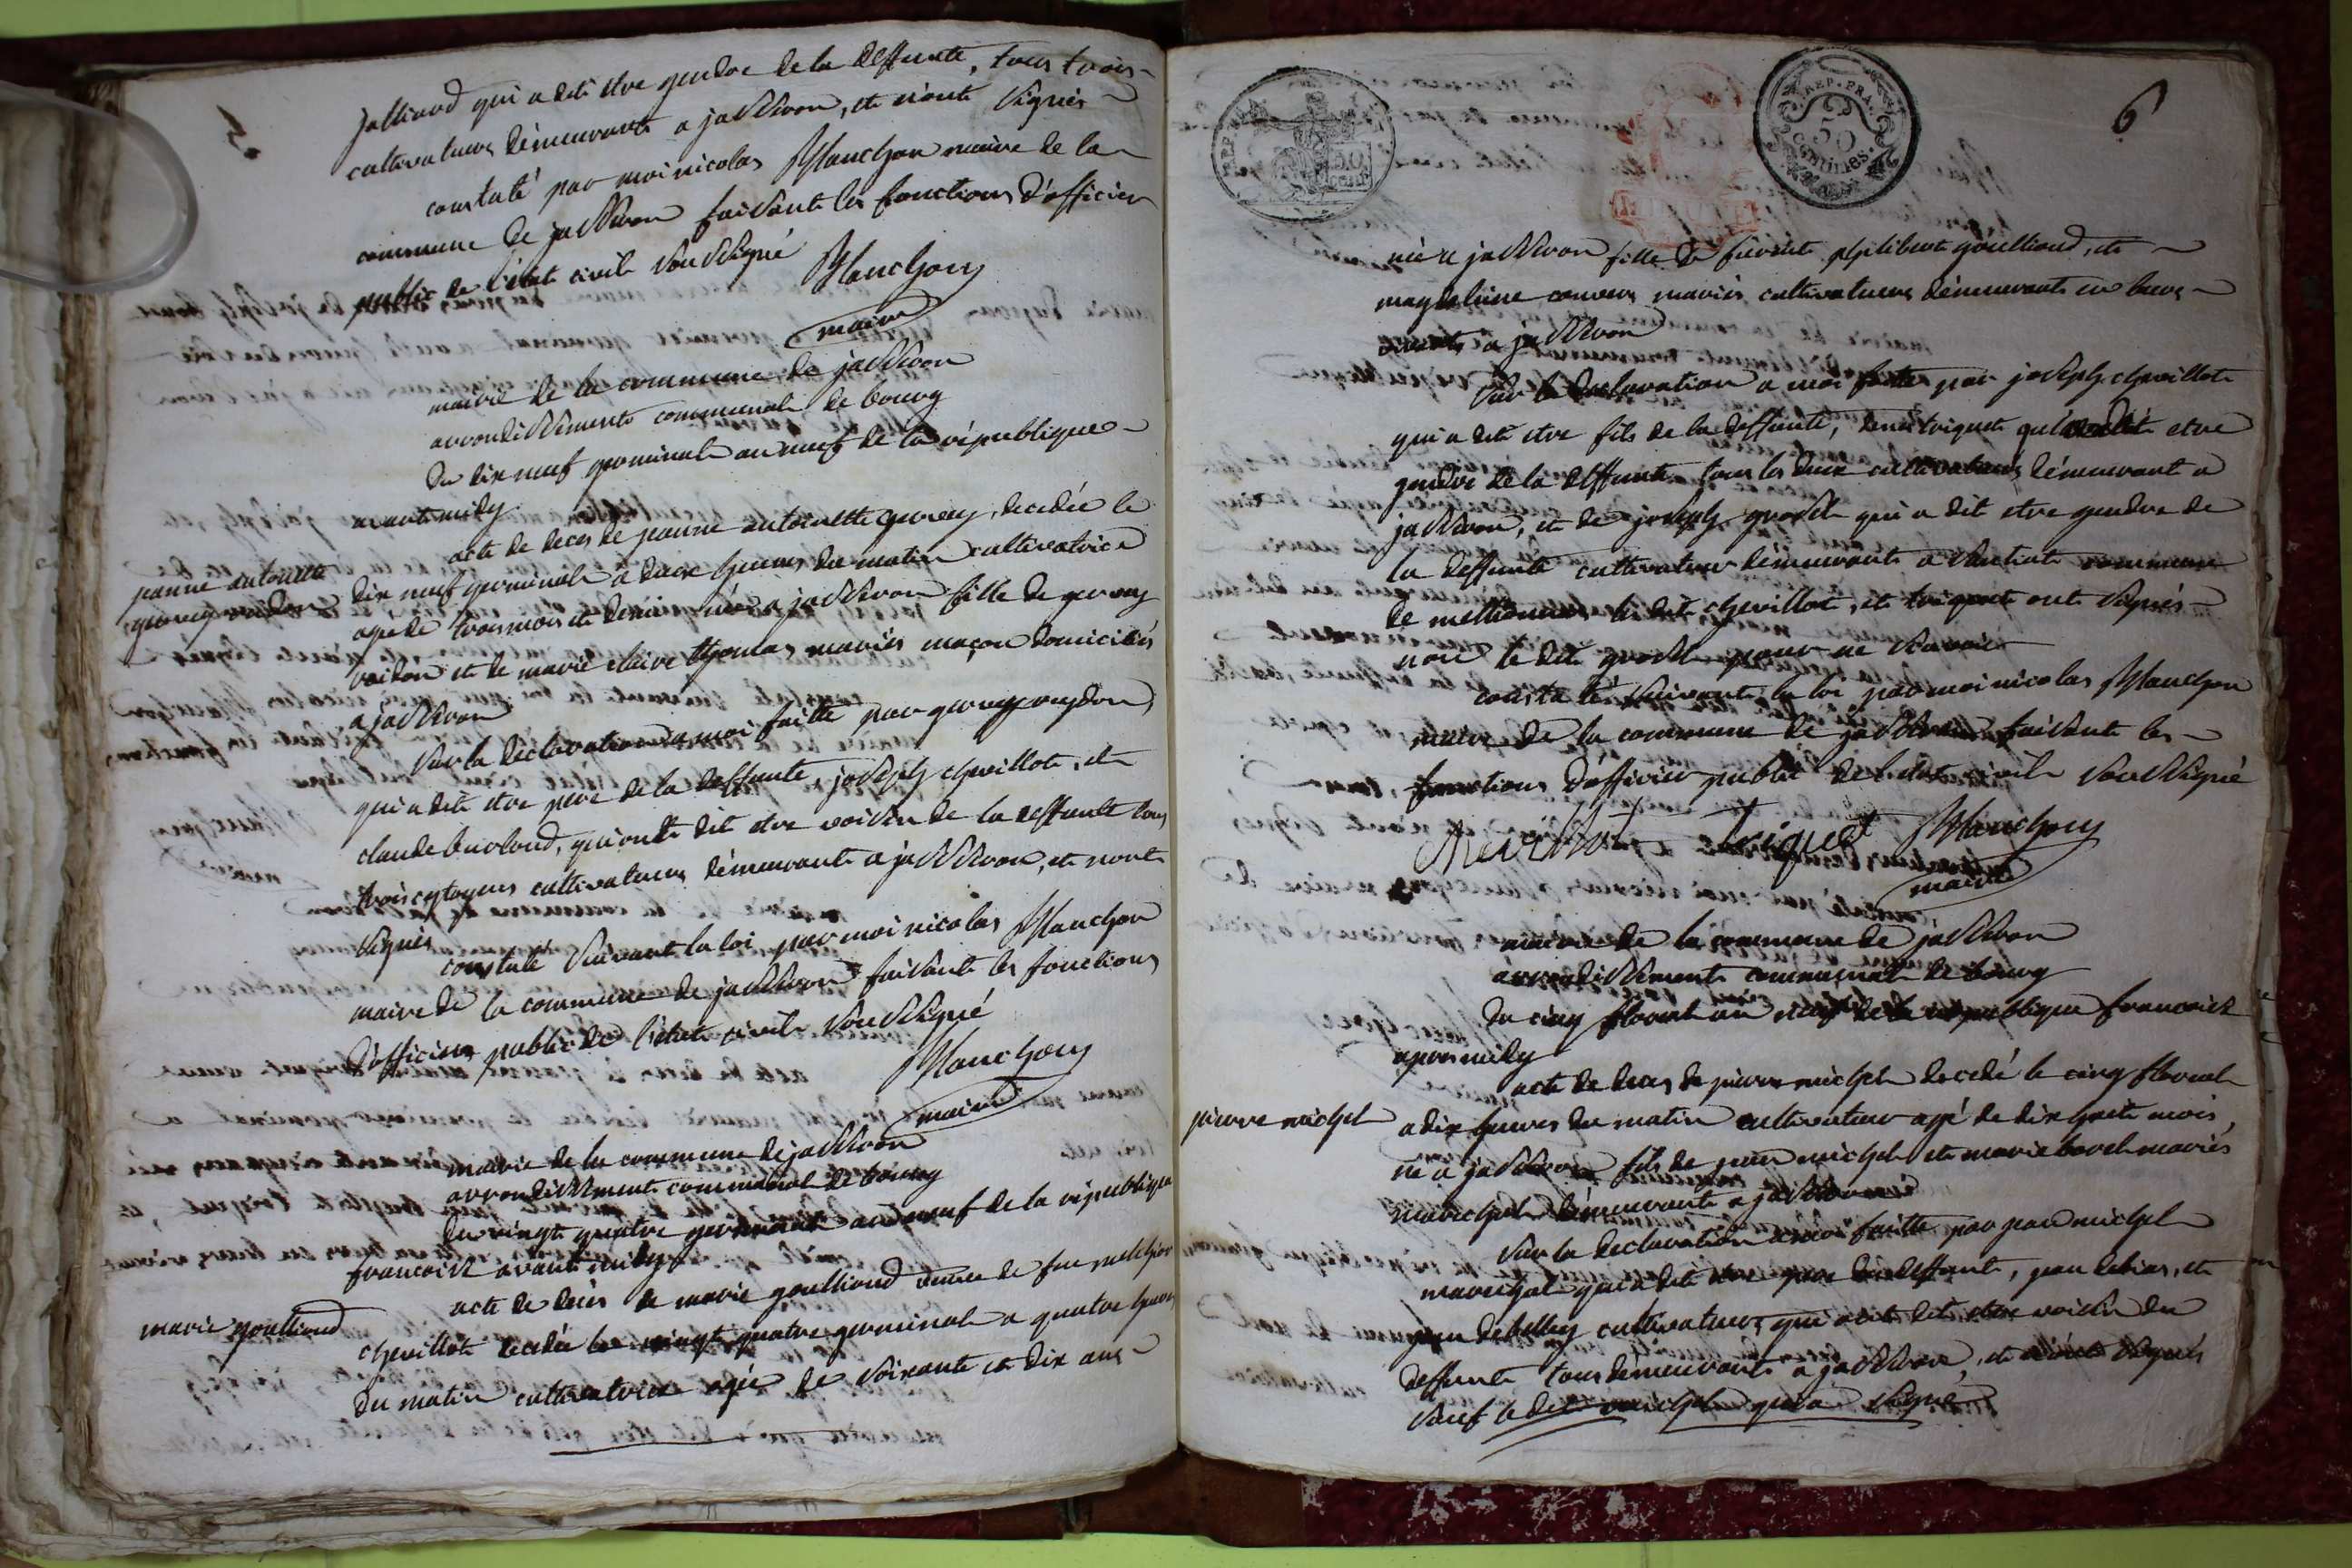 5.
jalliard qui a dit etre gendre de la deffunte, tous trois
cultivateurs démeurants a jasseron, et n'onts signés
constaté par moi nicolas Manchon maire de la
commune de jasseron faisants les fonctions d'officier
public de l'état civil soussigné
Manchon
maire
mairie de la commune de jasseron
arrondissements communal de bourg
du dix neuf germinal an neuf de la république
avant midy
acte de deces de jeanne antoinette decedée le
jeanne antoinette
dix neuf germinal à deux heures du matin cultivatrice
agée de trois mois et demi née a jasseron fille de
et de marie claire thomas mariés maçon domiciliés
a jasseron
sur la declaration a moi faitte par
qui a dit etre pere de la deffunte, joseph chevillot, et
claude burloud, qui ont dit etre voisin de la deffunte tous
trois cytoyens cultivateurs démeurants a jasseron, et n'onts
signés
constaté suivant la loi par moi nicolas Manchon
maire de la commune de jasseron faisants les fonctions
d'officier public de l'état civil soussigné
Manchon
maire
mairie de la commune de jasseron
arrondissements communal de bourg
du vingt quatre germinal an neuf de la république
francoise avant midy
acte de deces de marie goullioud veuve de feu melchior
marie goullioud
chevillot decedée le vingt quatre germinal a quatre heures
du matin cultivatrice agée de soixante et dix ans
REP. FRA.
50
centimes.
6
née a jasseron fille de philibert goullioud, et
magdeleine convers mariés cultivateurs démeurants en leurs
vivants a jasseron
sur la declaration a moi faitte par joseph chevillot
qui a dit etre fils de la deffunte, triquet qui a dit etre
gendre de la deffunte tous les deux cultivateurs démeurant a
jasseron, et de joseph qui a dit etre gendre de
la deffunte cultivateur démeurants a commune
de les dit chevillot, et triquet onts signés
non le dit pour ne savoir
constaté suivant la loi par moi nicolas Manchon
maire de la commune de jasseron faisants les
fonctions d'officier public de l'état civil soussigné
Chevillot Triquet Manchon
maire
mairie de la commune de jasseron
arrondissements communal de bourg
du cinq floreal an neuf de la république francoise
apres midy
acte de deces de pierre michel decedé le cinq floreal
pierre michel
a dix heures du matin cultivateur agé de dix huit mois,
né a jasseron fils de jean michel et marie mariés
marechal démeurants a jasseron
sur la declaration a moi faitte par jean michel
marechal qui a dit etre pere du deffunt, jean, et
jean cultivateurs qui onts dit etre voisin du
deffunte tous démeurants a jasseron, et n'onts signés
sauf le dit michel qui a signé